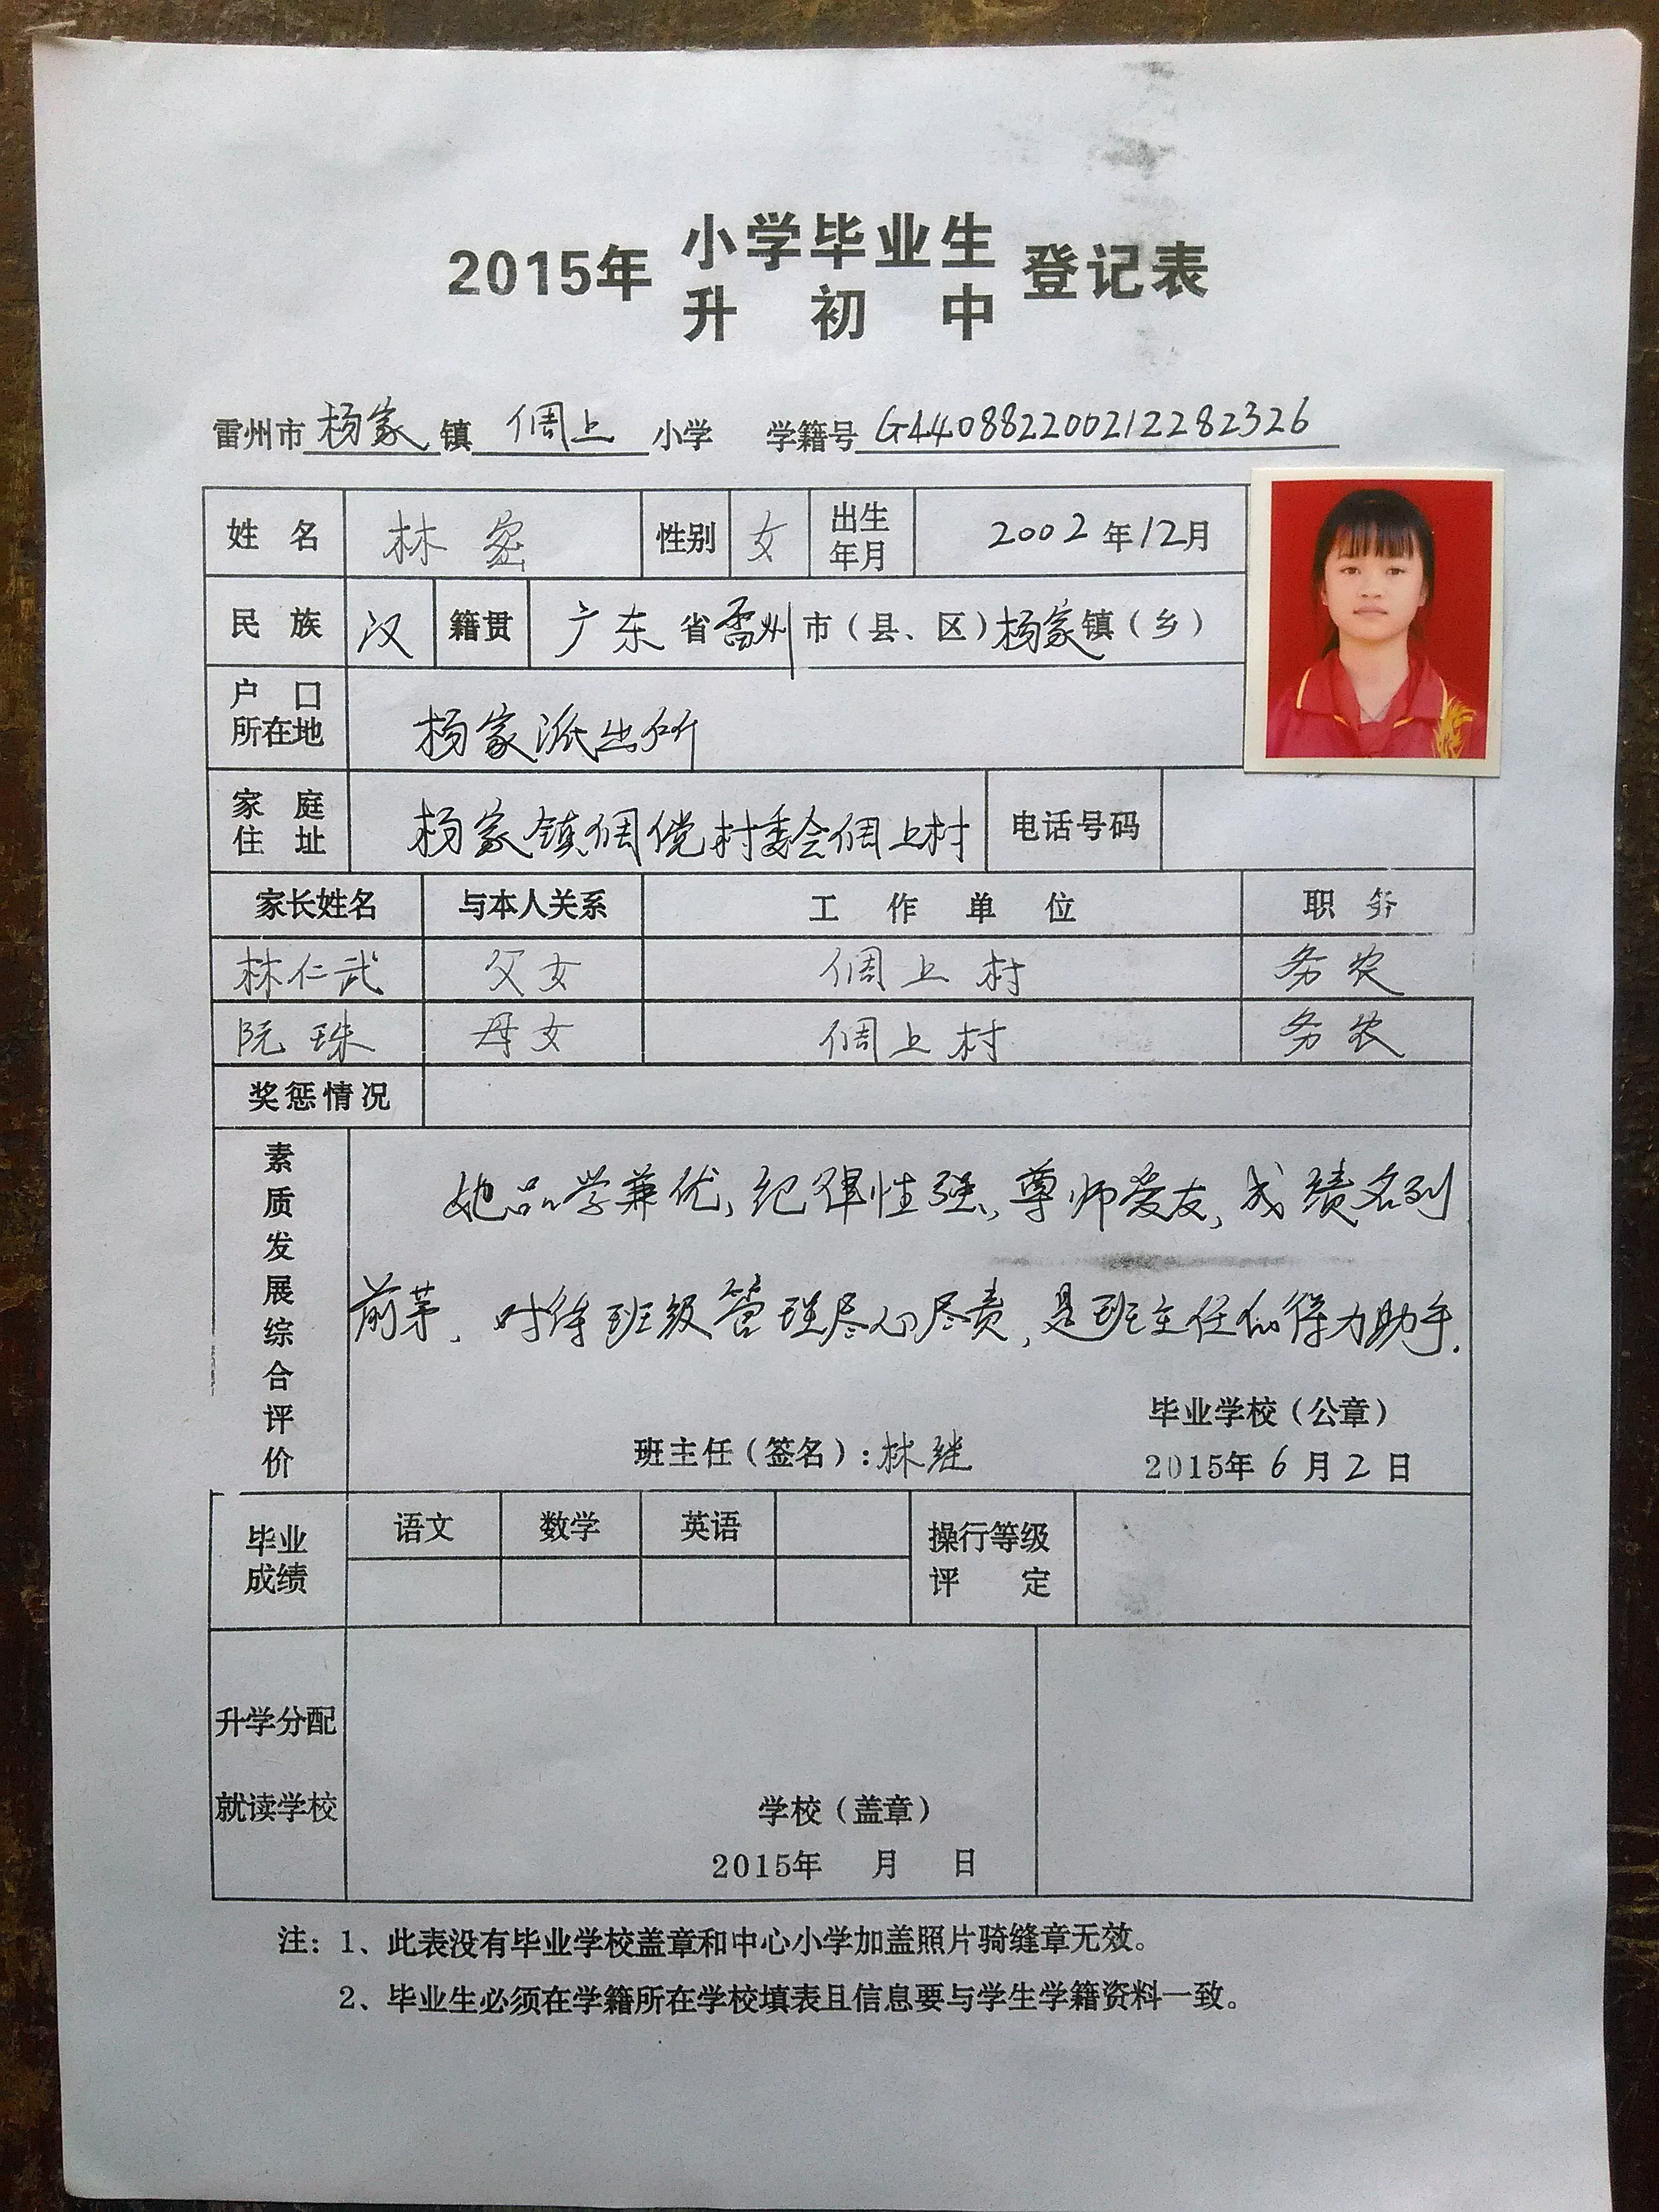 2015年 小学毕业生 登记表
升初中
雷州市杨家镇倜上小学 学籍号G440882200212282326
姓名 林密 性别 女 出生年月 2002年12月
民族 汉 籍贯 广东省雷州市（县、区）杨家镇（乡）
户口所在地 杨家派出所
家庭住址 杨家镇倜傥村委会倜上村 电话号码
家长姓名 与本人关系 工作单位 职务
林仁武 父女 倜上村 务农
阮珠 母女 倜上村 务农
奖惩情况
素质发展综合评价
她品学兼优，纪律性强，尊师爱友，成绩名列
前茅，对待班级管理尽心尽责，是班主任的得力助手.
毕业学校（公章）
班主任（签名）：林继 2015年6月2日
毕业成绩 语文 数学 英语 操行等级评定
升学分配
就读学校
学校（盖章）
2015年 月 日
注：1、此表没有毕业学校盖章和中心小学加盖照片骑缝章无效。
2、毕业生必须在学籍所在学校填表且信息要与学生学籍资料一致。